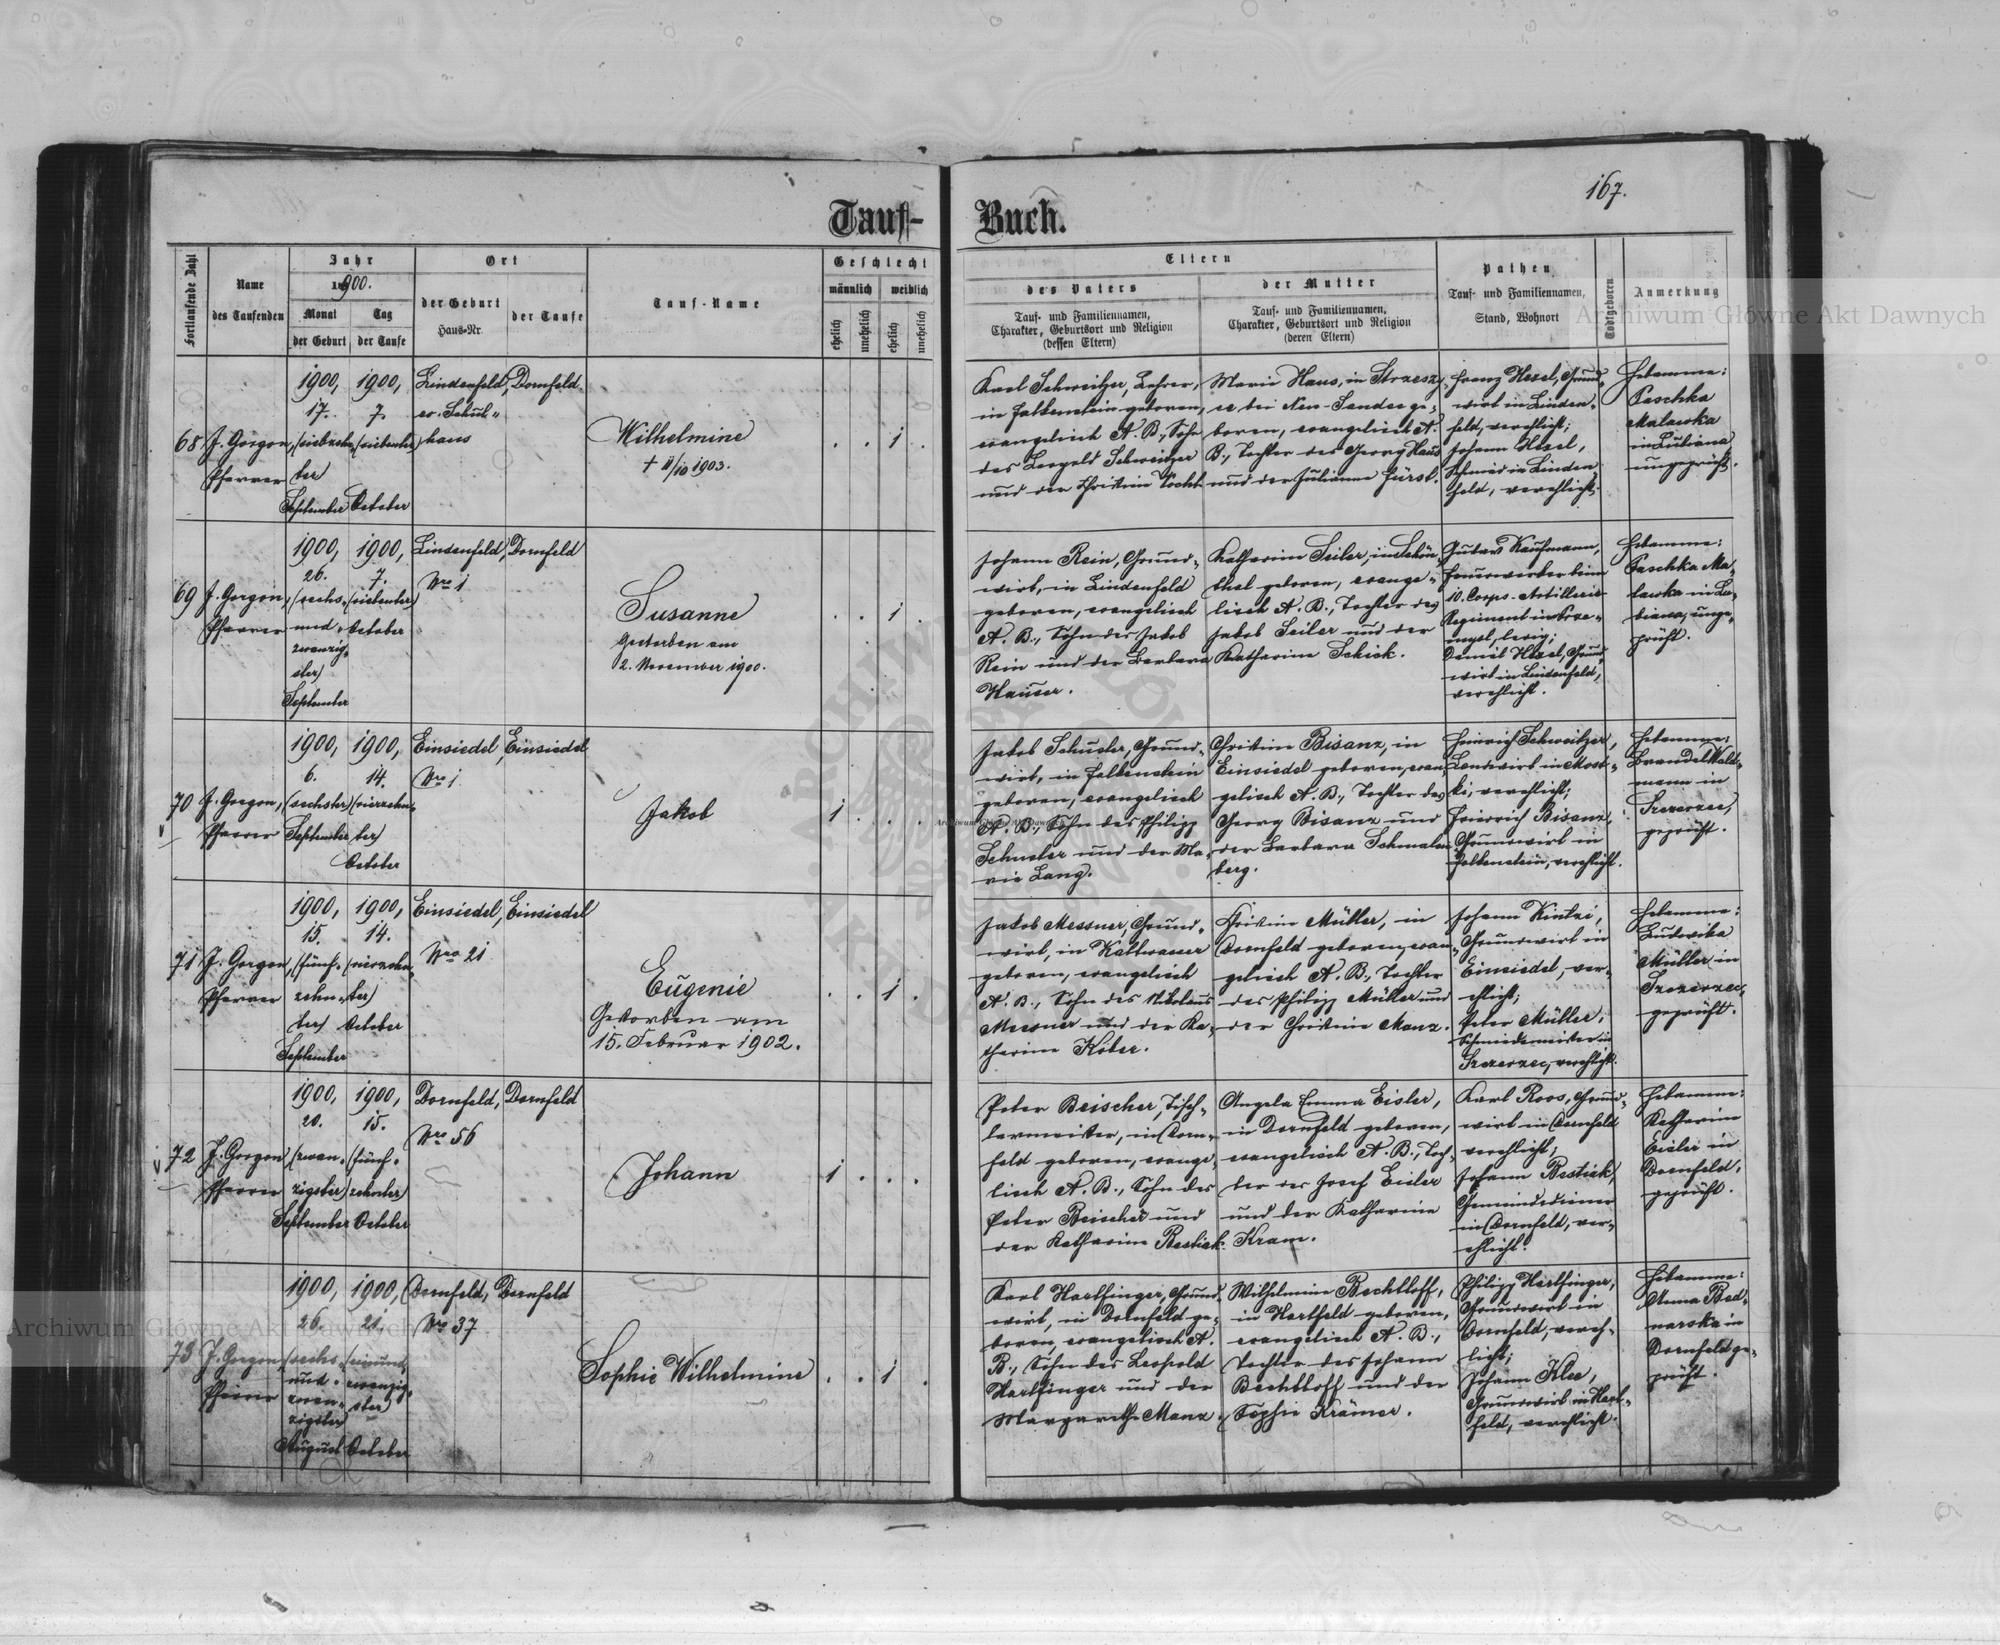 167.
Tauf-Buch.
Fortlaufende Zahl
Name
des Taufenden
Jahr
1900.
Monat
der Geburt
Tag
der Taufe
Ort
der Geburt
Haus-Nr.
der Taufe
Tauf-Name
Geschlecht
männlich
weiblich
ehelich
unehelich
ehelich
unehelich
Eltern
des Vaters
Tauf- und Familiennamen,
Charakter, Geburtsort und Religion
(dessen Eltern)
der Mutter
Tauf- und Familiennamen,
Charakter, Geburtsort und Religion
(deren Eltern)
Pathen
Tauf- und Familiennamen,
Stand, Wohnort
Todtgeboren
Anmerkung
68
J. Gorgon,
Pfarrer
1900,
17.
(siebzehn-
ter)
September
1900,
7.
(siebenter)
October
Lindenfeld,
ev. Schul-
haus
Dornfeld
Wilhelmine
† 11/10 1903.
. . 1 .
Karl Schweitzer, Lehrer,
in Falkenstein geboren,
evangelisch A. B., Sohn
des Leopold Schweitzer
und der Christine
Marie Haus, in Strzesz-
ce bei Neu-Sandez ge-
boren, evangelisch A.
B., Tochter des Georg Haus
und der Juliane Fürst.
Franz Hexel, Grund-
wirt in Linden-
feld, verehlicht;
Johann Hexel,
Schmied in Linden
feld, verehlicht.
Hebamme:
Paschka
Malawka
in Lubiana
ungeprüft.
69
J. Gorgon,
Pfarrer
1900,
26.
(sechs-
und-
zwanzig-
ster)
September
1900,
7.
(siebenter)
October
Lindenfeld,
Nro 1
Dornfeld
Susanne
Gestorben am
2. November 1900.
. . 1 .
Johann Rein, Grund-
wirt, in Lindenfeld
geboren, evangelisch
A. B., Sohn des Jakob
Rein und der Barbara
Hauser.
Katharine Seiler, in Schön-
thal geboren, evange-
lisch A. B., Tochter des
Jakob Seiler und der
Katharine Schick.
Gustav Kaufmann,
Feuerwerker beim
10. Corps-Artillerie-
Regiment in Prze-
mysl, ledig;
Daniel Hexel, Grund-
wirt in Lindenfeld,
verehlicht.
Hebamme:
Paschka Ma-
lawka in Lu-
biana, unge-
prüft.
70
J. Gorgon,
Pfarrer
1900,
6.
(sechster)
September
1900,
14.
(vierzehn-
ter)
October
Einsiedel,
Nro 1
Einsiedel
Jakob
1 . . .
Jakob Schuster, Grund-
wirt, in Falkenstein
geboren, evangelisch
A. B., Sohn des Philipp
Schuster und der Ma-
rie Lang.
Christine Bisanz, in
Einsiedel geboren, evan-
gelisch A. B., Tochter des
Georg Bisanz und
der Barbara Schmalen-
berg.
Heinrich Schweitzer,
Landwirt in Most-
ki, verehlicht;
Friedrich Bisanz,
Grundwirt in
Falkenstein, verehlicht.
Hebamme:
Brandel Wald-
mann in
Szczerzec,
geprüft.
71
J. Gorgon,
Pfarrer
1900,
15.
(fünf-
zehn-
ter)
September
1900,
14.
(vierzehn-
ter)
October
Einsiedel,
Nro 21
Einsiedel
Eugenie
Gestorben am
15. Februar 1902.
. . 1 .
Jakob Messner, Grund-
wirt, in Kaltwasser
geboren, evangelisch
A. B., Sohn des Nikolaus
Messner und der Ka-
tharine Kober.
Christine Müller, in
Dornfeld geboren, evan-
gelisch A. B., Tochter
des Philipp Müller und
der Christine Manz.
Johann Kintzi,
Grundwirt in
Einsiedel, ver-
ehlicht;
Peter Müller,
Schmiedemeister in
Szczerzec, verehlicht.
Hebamme:
Ludwika
Müller in
Szczerzec,
geprüft.
72
J. Gorgon
Pfarrer
1900,
20.
(zwan-
zigster)
September
1900,
15.
(fünf-
zehnter)
October
Dornfeld,
Nro 56
Dornfeld
Johann
1 . . .
Peter Beischer, Tisch-
lermeister, in Dorn-
feld geboren, evange-
lisch A. B., Sohn des
Peter Beischer und
der Katharine Bestiak.
Angela Emma Eisler,
in Dornfeld geboren,
evangelisch A. B., Toch-
ter des Josef Eisler
und der Katharine
Kram.
Karl Roos, Grund-
wirt in Dornfeld
verehlicht;
Johann Bestiak,
Gemeindediener
in Dornfeld, ver-
ehlicht.
Hebamme:
Katharine
Eisler in
Dornfeld,
geprüft.
73
J. Gorgon
Pfarrer
1900,
26.
(sechs-
und-
zwan-
zigster)
August
1900,
21.
(einund-
zwanzig-
ster)
October
Dornfeld,
Nro 37
Dornfeld
Sophie Wilhelmine
. . 1 .
Karl Harlfinger, Grund-
wirt, in Dornfeld ge-
boren, evangelisch A.
B., Sohn des Leopold
Harlfinger und der
Margarethe Manz.
Wilhelmine Bechtloff,
in Hartfeld geboren,
evangelisch A. B.,
Tochter des Johann
Bechtloff und der
Sophie Krämer.
Philipp Harlfinger,
Grundwirt in
Dornfeld, vereh-
licht;
Johann Klee,
Grundwirt in Hart-
feld, verehlicht.
Hebamme:
Anna Bed-
narska in
Dornfeld ge-
prüft.
Archiwum Główne Akt Dawnych
Archiwum Główne Akt Dawnych
Archiwum Główne Akt Dawnych